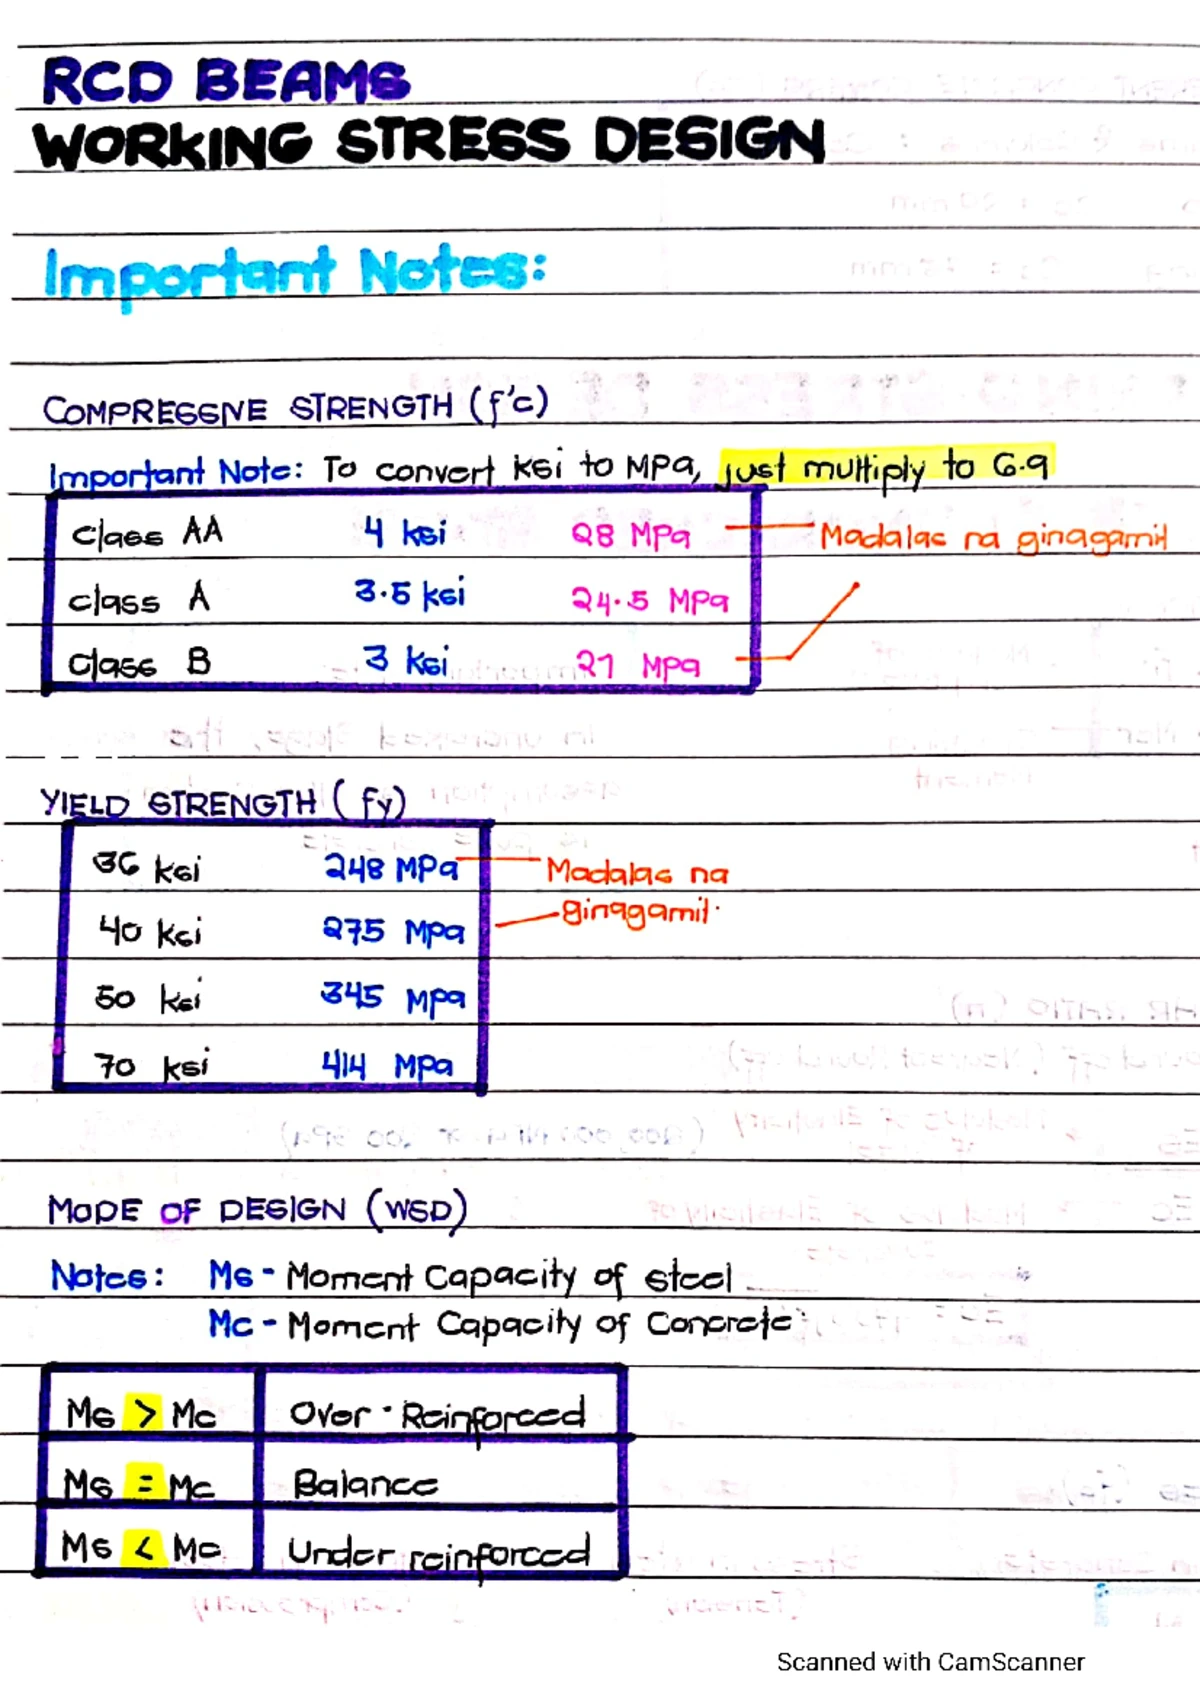 RCD BEAMS
WORKING STRESS DESIGN
Important Notes:
COMPRESSIVE STRENGTH (f'c)
Important Note: To convert ksi to MPa, just multiply to 6.9
class AA 4 ksi 28 MPa Madalas na ginagamit
class A 3.5 ksi 24.5 MPa
class B 3 ksi 21 MPa
YIELD STRENGTH (fy)
36 ksi 248 MPa Madalas na
ginagamit.
40 ksi 275 MPa
50 ksi 345 MPa
70 ksi 414 MPa
MODE OF DESIGN (WSD)
Notes: Ms - Moment Capacity of steel
Mc - Moment Capacity of Concrete
Ms > Mc Over - Reinforced
Ms = Mc Balance
Ms < Mc Under reinforced
Scanned with CamScanner